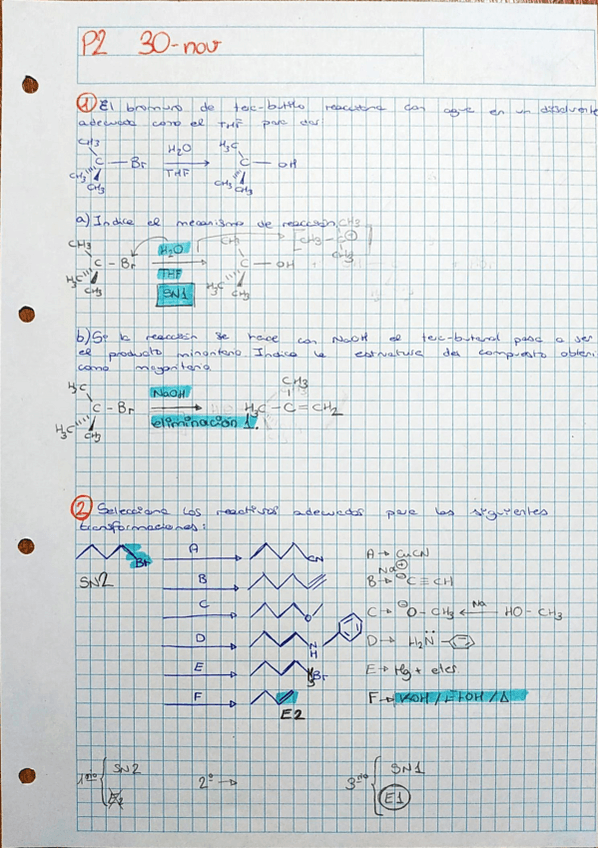 P2 30-nov
① El bromuro de terc-butilo reacciona con agua en un disolvente
adecuado como el THF para dar:
CH3 H2O H3C
C — Br → C — OH
CH3 CH3 THF CH3 CH3
a) Indica el mecanismo de reacción
CH3 H2O CH3 CH3
C — Br → C — OH CH3 — C⊕
H3C CH3 THF H3C CH3
SN1
b) Si la reacción se hace con NaOH el terc-butanol pasa a ser
el producto minoritario. Indica la estructura del compuesto obteni
como mayoritario
H3C NaOH CH3
C — Br → H3C — C = CH2
H3C CH3 eliminación 1.
② Selecciona los reactivos adecuados para las siguientes
transformaciones:
Br A CN A → CuCN
SN2 B B → Na⊕ ⊖C ≡ CH
C O C → ⊖O — CH3 ← Na HO — CH3
D N H D → H2N̈ —
E Br E → Mg + eter
F F → KOH / EtOH / Δ
E2
1rio SN2 2º → 3rio SN1
E2 E1